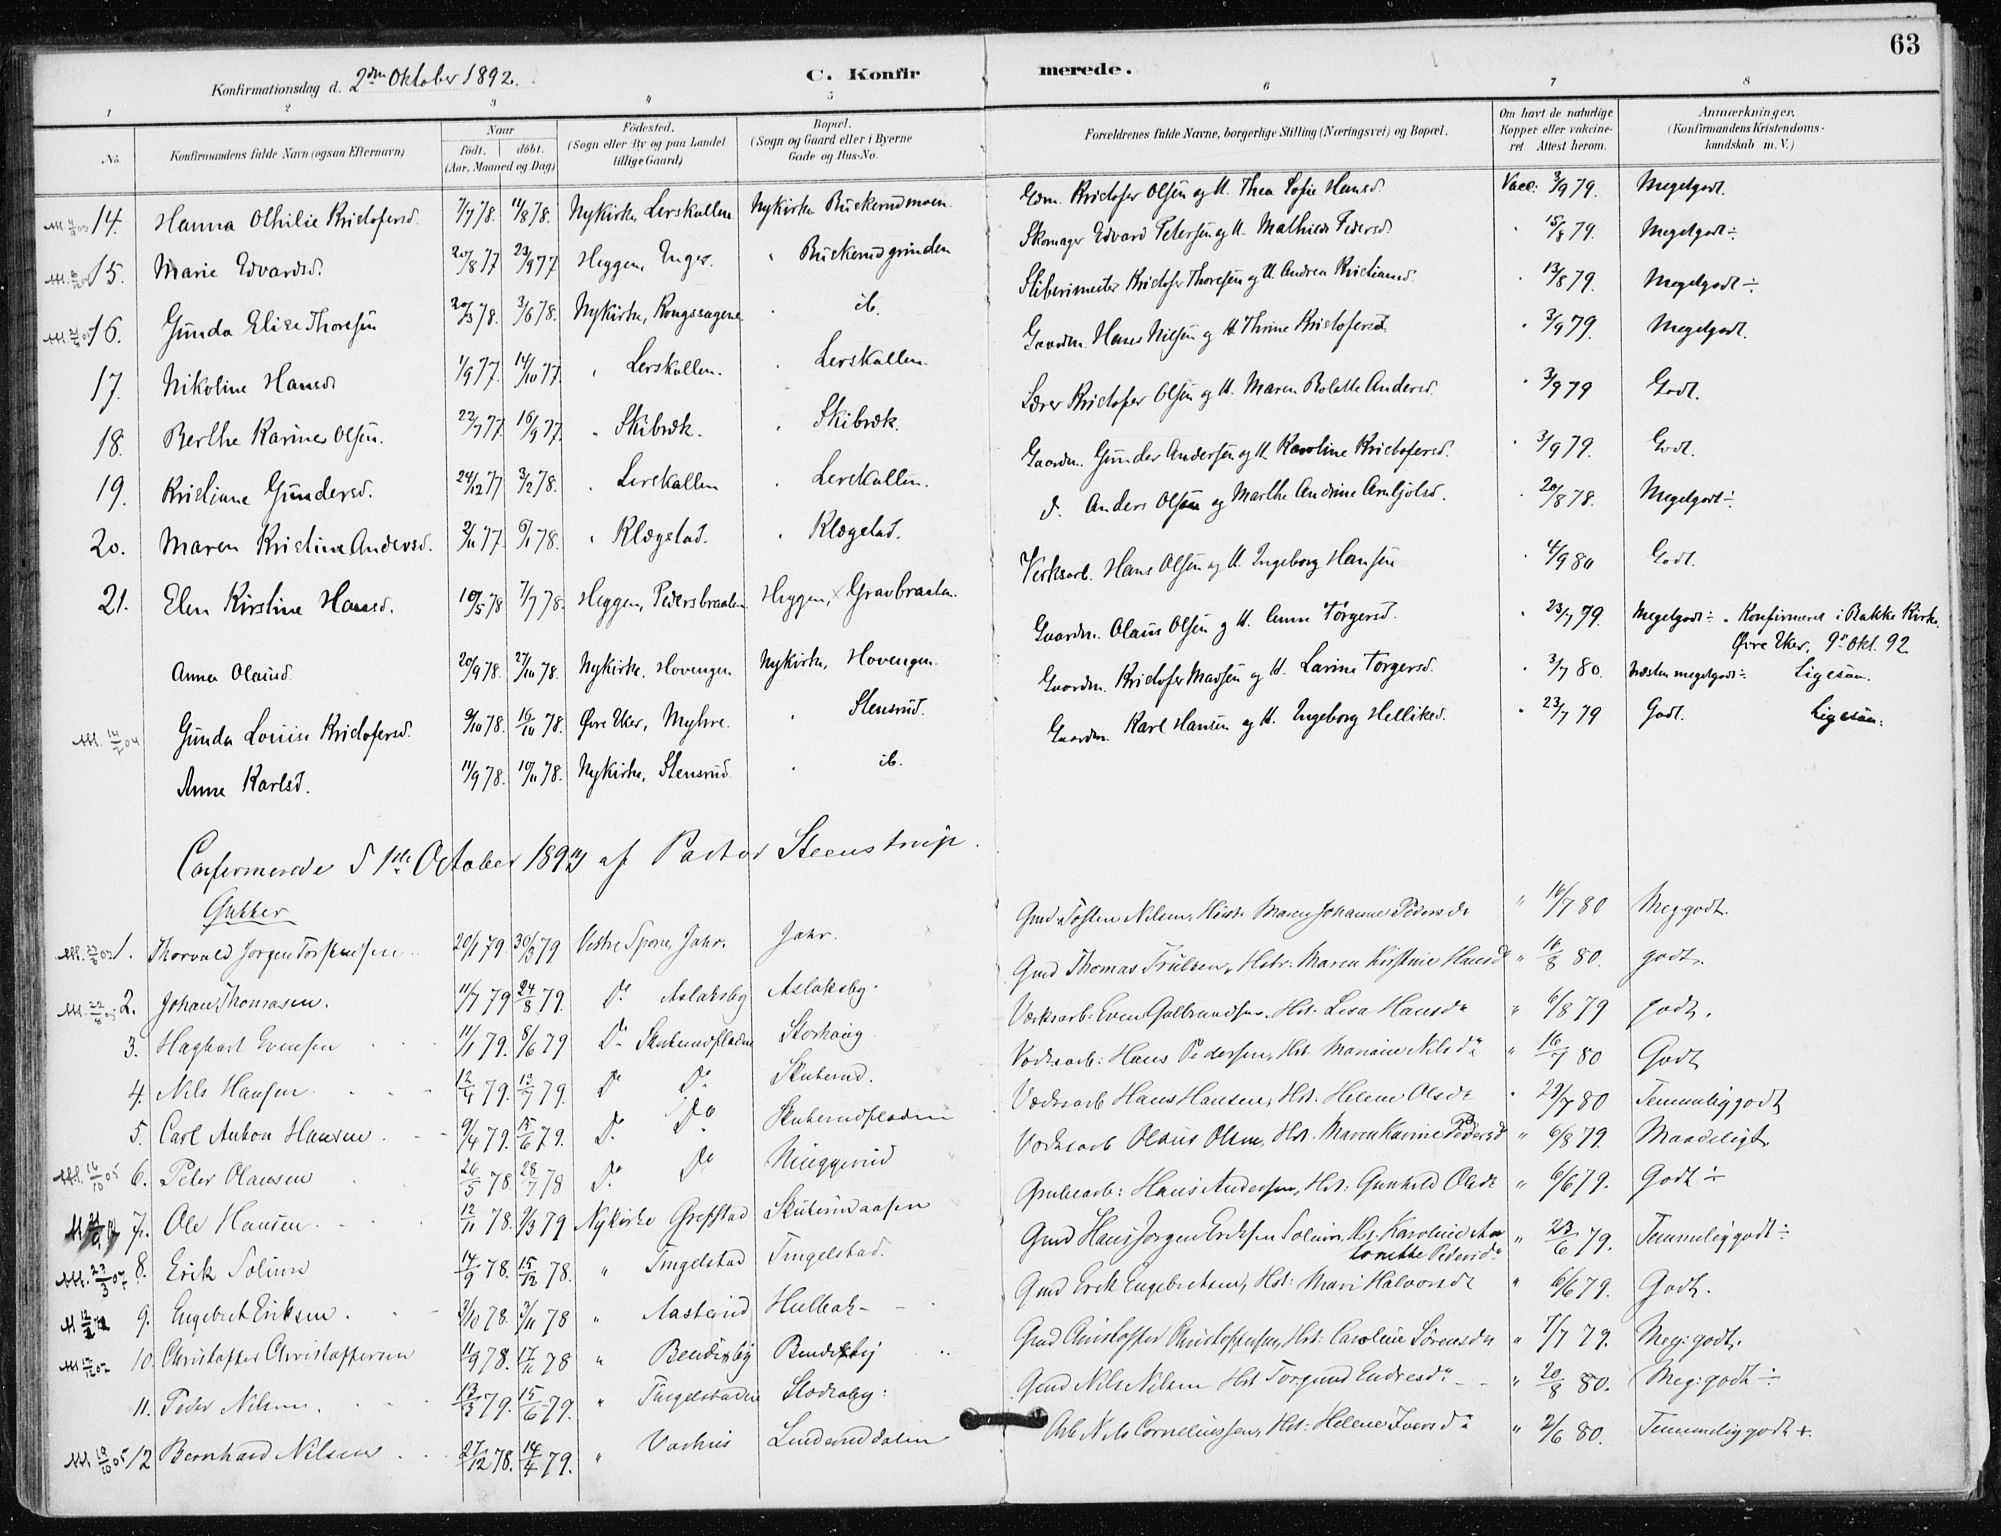 63
Konfirmationsdag d. 2den Oktober 1892.
C. Konfirmerede.
1 2 3 4 5 6 7 8
No. Konfirmandens fulde Navn (ogsaa Efternavn) Naar født. døbt. (Aar, Maaned og Dag) Fødested. (Sogn eller By og paa Landet tillige Gaard) Bopæl. (Sogn og Gaard eller i Byerne Gade og Hus-No. Forældrenes fulde Navne, borgerlige Stilling (Næringsvei) og Bopæl. Om havt de naturlige Kopper eller vakcineret. Attest herom. Anmærkninger. (Konfirmandens Kristendomskundskab m. V.)
14. Hanna Othilie Kristofersd. 7/7 78. 11/8 78. Nykirke, Lerskallen Nykirke Buskerudmoen. Gdm. Kristofer Olsen og H. Thea Sofie Hansd. Vacc: 3/9 79. Megetgodt.
15. Marie Edvardsd. 20/8 77 23/9 77 Heggen, Enger. " Buskerudgrinden Skomager Edvard Petersen og H. Mathilde Pedersd. " 15/8 79. Megetgodt ÷.
16. Gunda Elise Thoresen 20/3 78. 3/6 78. Nykirke, Kongssagene " ib. Sliberimester Kristofer Thoresen og H. Andrea Kristiansd. " 13/8 79. Megetgodt ÷.
17. Nikoline Hansd. 1/9 77. 14/10 77. " Lerskallen. " Lerskallen. Gaardm. Hans Nilsen og H. Thrine Kristofersd. " 3/9 79. Megetgodt.
18. Berthe Karine Olsen. 22/7 77. 16/9 77. " Skibræk. " Skibræk. Lærer Kristofer Olsen og H. Maren Bolette Andersd. " 3/9 79 Godt.
19. Kristiane Gundersd. 24/12 77 3/2 78. " Lerskallen " Lerskallen. Gaardm. Gunder Andersen og H. Karoline Kristofersd. " 3/9 79. Godt.
20. Maren Kristine Andersd. 2/11 77. 6/1 78. " Klægstad. " Klægstad. d. Anders Olsen og Marthe Andrine Arnljotsd. " 20/8 78. Megetgodt ÷
21. Elen Kirstine Hansd. 10/5 78 7/7 78. Heggen, Pedersbraaten Heggen, Gravbraaten. Verksarb. Hans Olsen og H. Ingeborg Hansen " 4/9 80 Godt.
Anna Olausd. 20/9 78. 27/10 78. Nykirke, Hovengen Nykirke, Hovengen. Gaardm. Olaus Olsen og H. Anne Torgersd. " 23/7 79. Megetgodt ÷. Konfirmeret i Bakke Kirke, Øvre Eker, 9de Okt. 92
Gunda Louise Kristofersd. 9/10 78. 16/10 78. Øvre Eker, Myhre. " Stensrud. Gaardm. Kristofer Madsen og H. Larine Torgersd. " 3/7 80. Næsten megetgodt ÷ Ligesaa.
Anne Karlsd. 11/9 78. 10/11 78. Nykirke, Stensrud " ib. Gaardm. Karl Hansen og H. Ingeborg Helliksd. " 23/7 79 Godt. Ligesaa.
Confirmerede d 1ste October af Pastor Steenstrup.
Gutter
1. Thorvald Jørgen Torstensen 20/1 79. 30/3 79 Vestre Spone, Jahr. Jahr. Gmd Tosten Nilsen, Hustr. Maren Johanne Pedersdr " 16/7 80 Meg godt.
2. Johan Thomasen. 11/7 79 24/8 79. Do Aslaksby Aslaksby. Gmd Thomas Trulsen, Hstr: Maren Kirstine Hansd " 16/8 80. godt.
3. Hagbart Evensen 11/1 79. 8/6 79 Do Skuterudfladen Storhaug Værksarb: Even Gulbrandsen, Hst. Lisa Hansdr " 6/8 79 godt.
4. Nils Hansen. 12/4 79. 13/7 79. Do Do Skuterud. Værksarb: Hans Pedersen, Hst. Mariane Nilsdr " 16/7 80 Godt
5. Carl Anton Hansen 9/4 79. 15/6 79. Do Do Skuterudfladen Værksarb Hans Hansen, Hst. Helene Olsdr " 29/7 80 Temmelig godt
6. Peter Olausen 26/5 78 28/7 78 Do Do Værksarb Olaus Olsen, Hst. Maren Karine Pedersd " 6/8 79. Maadeligt.
7. Ole Hansen. 12/11 78. 9/3 79 Nykirke Grefstad Skuterudaasen Grubearb: Hans Andersen, Hst: Gunhild Olsdr " 6/6 79. Godt ÷
8. Erik Solum 14/9 78. 15/12 78. " Tingelstad Tingelstad. Gmd Hans Jørgen Eriksen Solum, Hs. Karoline Lorentse Pedersdr. " 23/6 79. Temmelig godt ÷
9. Engebret Eriksen. 3/10 78. 3/11 78 " Aasterud Hulbak Gmd Erik Engebretsen, Hst: Mari Halvorsdr " 6/6 79. Godt.
10. Christoffer Christoffersen 11/9 78. 17/11 78 " Bendixby Bendixby Gmd Christoffer Christoffersen, Hst: Caroline Sørensdr " 7/7 79. Meg: godt.
11. Peder Nilsen. 13/3 79. 15/6 79. " Tingelstadeie Stodraby: Gmd Nils Nilsen Hst Torgund Endresdr " 20/8 80. Meg: godt ÷
12 Bernhard Nilsen 27/12 78. 14/4 79. " Varhus Linderuddalen Arb Nils Corneliussen, Hst: Helene Iversdr " 2/6 80. Temmelig godt +.